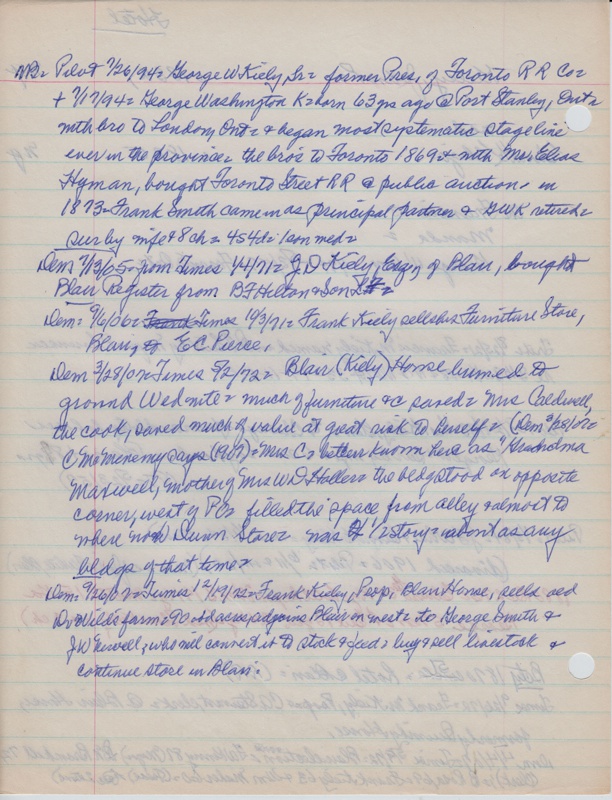 Hotel
NB= Pilot 7/26/94= George W Kiely, Sr= former Pres, of Toronto RR Co=
+ 7/17/94= George Washington K= born 63 yrs ago @ Port Stanley, Ont=
with bro to London, Ont= & began most systematic stage line
ever in the province= the bro's to Toronto 1869 & with Mr. Elias
Hyman, bought Toronto Street RR @ public auction. in
1873= Frank Smith came in as principal partner & GWK retired=
sur by wife & 8 ch= 4s 4d= 1 son med=
Dem 7/13/05= from Times 1/4/71= J D Kiely, Esq, of Blair, bought
Blair Register from B F Hilton & Son
Dem= 9/6/06= Times 10/3/71= Frank Kiely sells his Furniture Store,
Blair, to E C Pierce.
Dem 3/28/07= Times 5/2/72= Blair (Kiely) House burned to
ground Wed nite= much of furniture &c saved= Mrs Caldwell,
the cook, saved much of value at great risk to herself= (Dem 3/28/07=
C McMenemy says (1907)= Mrs C= better known here as "Grandma
Maxwell, mother of Mrs W D Haller= the bldg stood on opposite
corner, west of PO= filled the space from alley & almost to
where now Dunn Store= was 1/2 story= about as any
bldgs of that time=
Dem= 9/26/07= Times 12/19/72= Frank Kiely, Prop, Blair House, sells old
Dr Wilds farm= 90 odd acres adjoins Blair on west= to George Smith &
J W Newell, who will convert it to stock & feed= buy & sell livestock &
continue store in Blair.